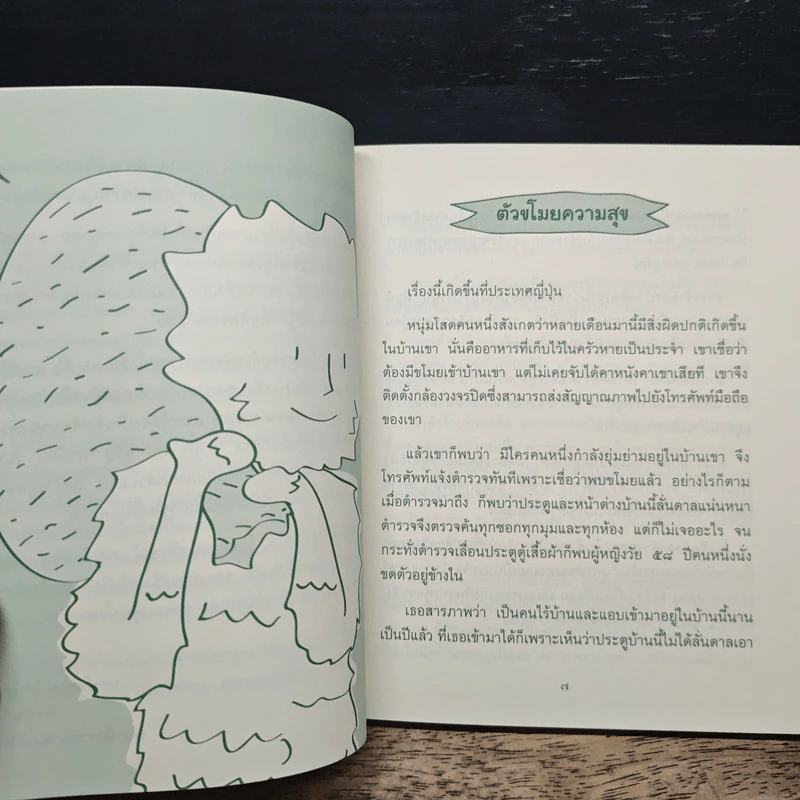 ตัวขโมยความสุข
เรื่องนี้เกิดขึ้นที่ประเทศญี่ปุ่น
หนุ่มโสดคนหนึ่งสังเกตว่าหลายเดือนมานี้มีสิ่งผิดปกติเกิดขึ้น
ในบ้านเขา นั่นคืออาหารที่เก็บไว้ในครัวหายเป็นประจำ เขาเชื่อว่า
ต้องมีขโมยเข้าบ้านเขา แต่ไม่เคยจับได้คาหนังคาเขาเสียที เขาจึง
ติดตั้งกล้องวงจรปิดซึ่งสามารถส่งสัญญาณภาพไปยังโทรศัพท์มือถือ
ของเขา
แล้วเขาก็พบว่า มีใครคนหนึ่งกำลังยุ่มย่ามอยู่ในบ้านเขา จึง
โทรศัพท์แจ้งตำรวจทันทีเพราะเชื่อว่าพบขโมยแล้ว อย่างไรก็ตาม
เมื่อตำรวจมาถึง ก็พบว่าประตูและหน้าต่างบ้านนี้ลั่นดาลแน่นหนา
ตำรวจจึงตรวจค้นทุกซอกทุกมุมและทุกห้อง แต่ก็ไม่เจออะไร จน
กระทั่งตำรวจเลื่อนประตูตู้เสื้อผ้าก็พบผู้หญิงวัย ๕๘ ปีคนหนึ่งนั่ง
ขดตัวอยู่ข้างใน
เธอสารภาพว่า เป็นคนไร้บ้านและแอบเข้ามาอยู่ในบ้านนี้นาน
เป็นปีแล้ว ที่เธอเข้ามาได้ก็เพราะเห็นว่าประตูบ้านนี้ไม่ได้ลั่นดาลเอา
๗